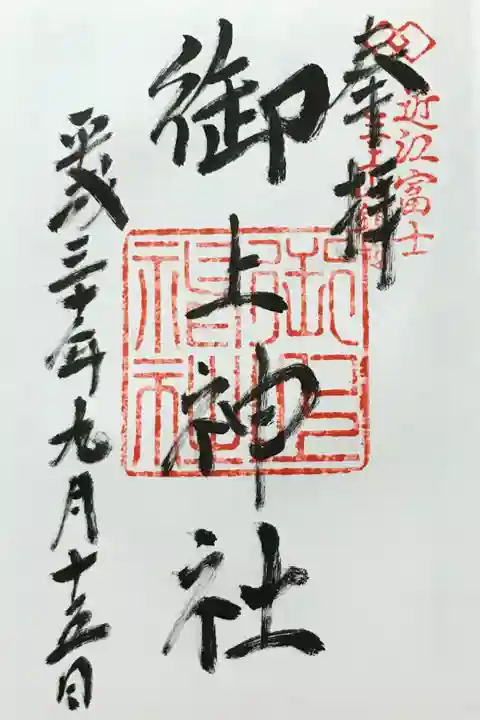 近江富士
奉拝
御上神社
平成三十年九月十五日